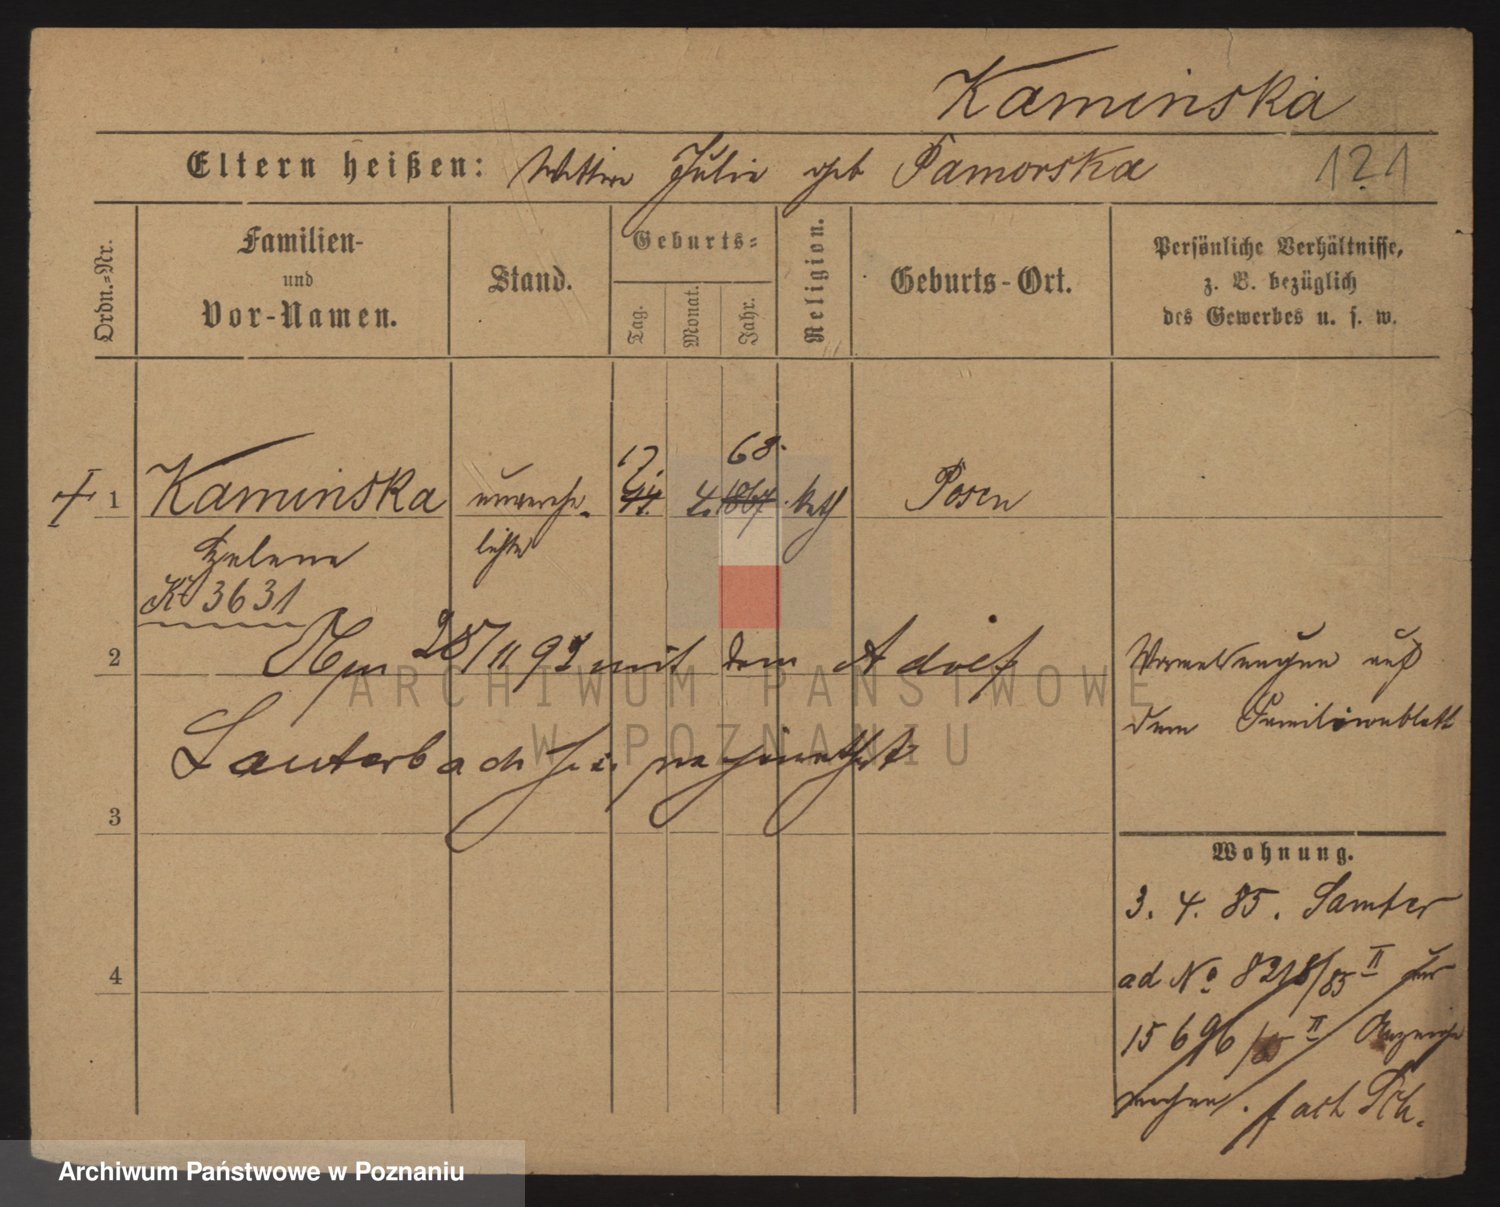 Kaminska
Eltern heißen: Wittwe Julie geb Pamorska
121
Ordn.-Nr.
Familien-
und
Vor-Namen.
Stand.
Geburts-
Tag.
Monat.
Jahr.
Religion.
Geburts-Ort.
Persönliche Verhältnisse,
z. B. bezüglich
des Gewerbes u. s. w.
17. 68.
1 Kaminska unverehe- 4. 1867. kath Posen
Helene lichte
K 3631
2 28/11 92 mit dem Adolf
Lauterbach
Vermerkungen auf
dem Familienblatt
3
Wohnung.
3. 4. 85. Samter
ad No 8218/85 II
4
15696/85 II Anzeige
ARCHIWUM PAŃSTWOWE
W POZNANIU
Archiwum Państwowe w Poznaniu